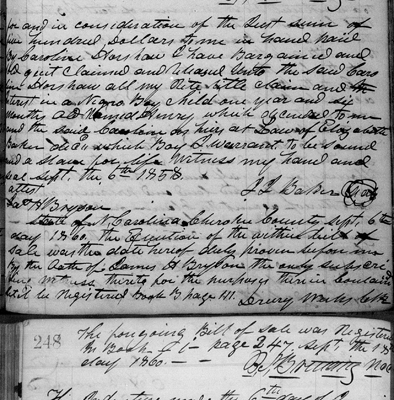 for and in consideration of the Just sum of
five hundred Dollars to me in hand paid
By Caroline Horshaw I have Bargained and
quit Claimed and Released unto the said Caro
line Horshaw all my Rite title claim and In
terest in a Negro Boy child one year and six
months old Named Henry which accrued to me
and the said Caroline as heirs at Law of Elizabeth
Baker decd which Boy I warrant to be sound
and a slave for life Witness my hand and
seal Sept the 6th 1858
J L Baker Seal
attest
Jas H Bryson
State of N Carolina Cherokee County Sept 6th
day 1860. the Execution of the within bill of
sale was this date hereof duly proven before me
By the oath of James H Bryson the only subscri
bing witness thereto for the purposes therein contained
Let it be Registered Book B page 111.
Drury Weeks Clk
248
The foregoing Bill of sale was Registered
In Book page 247 Sept the 18th
day 1860.
the 6th day of